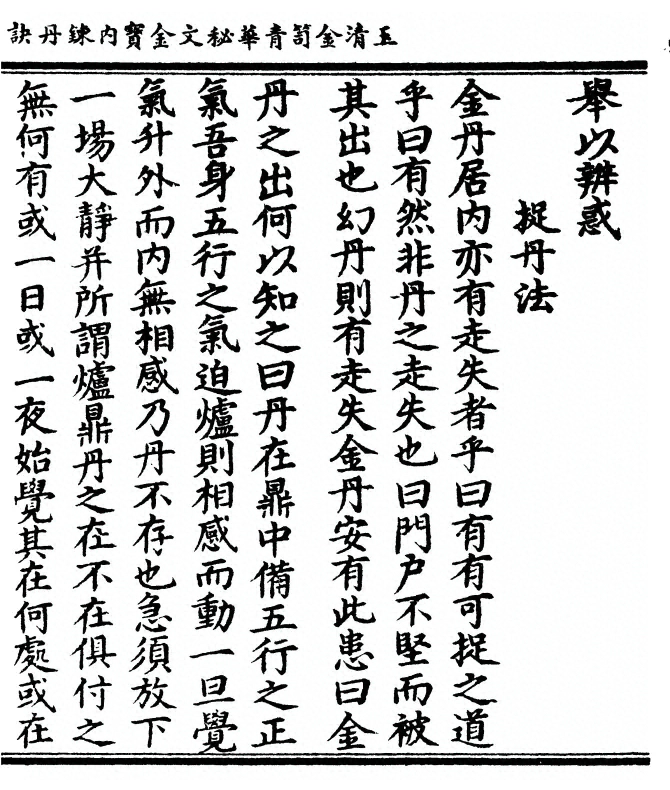 玉清金笥青華秘文金寶内鍊丹訣
舉以辨惑
捉丹法
金丹居内亦有走失者乎曰有有可捉之道
乎曰有然非丹之走失也曰門户不堅而被
其出也幻丹則有走失金丹安有此患曰金
丹之出何以知之曰丹在鼎中備五行之正
氣吾身五行之氣迫爐則相感而動一旦覺
氣升外而内無相感乃丹不存也急須放下
一場大靜并所謂爐鼎丹之在不在俱付之
無何有或一日或一夜始覺其在何處或在